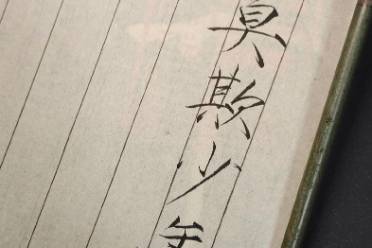 莫欺少年